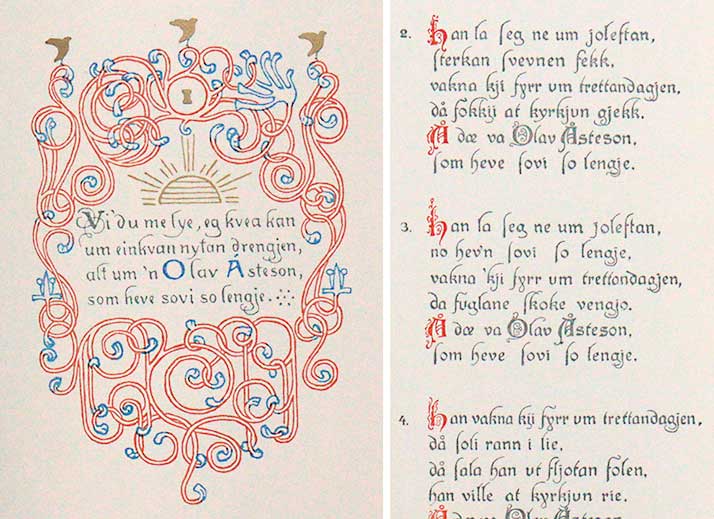 Vi du me lye, eg kvea kan
um einkvan nytan drengjen,
alt um 'n Olav Åsteson,
som heve sovi so lengje.
2. Han la seg ne um joleftan,
sterkan svevnen fekk,
vakna kji fyrr um trettandagjen,
då fokkji at kyrkjun gjekk.
Å dæ va Olav Åsteson,
som heve sovi so lengje.
3. Han la seg ne um joleftan,
no hev'n sovi so lengje,
vakna 'kji fyrr um trettandagjen,
da fuglane skoke vengjo.
Å dæ va Olav Åsteson,
som heve sovi so lengje.
4. Han vakna kji fyrr um trettandagjen,
då soli rann i lie,
då sala han ut fljotan folen,
han ville at kyrkjun rie.
Å dæ va Olav Åsteson